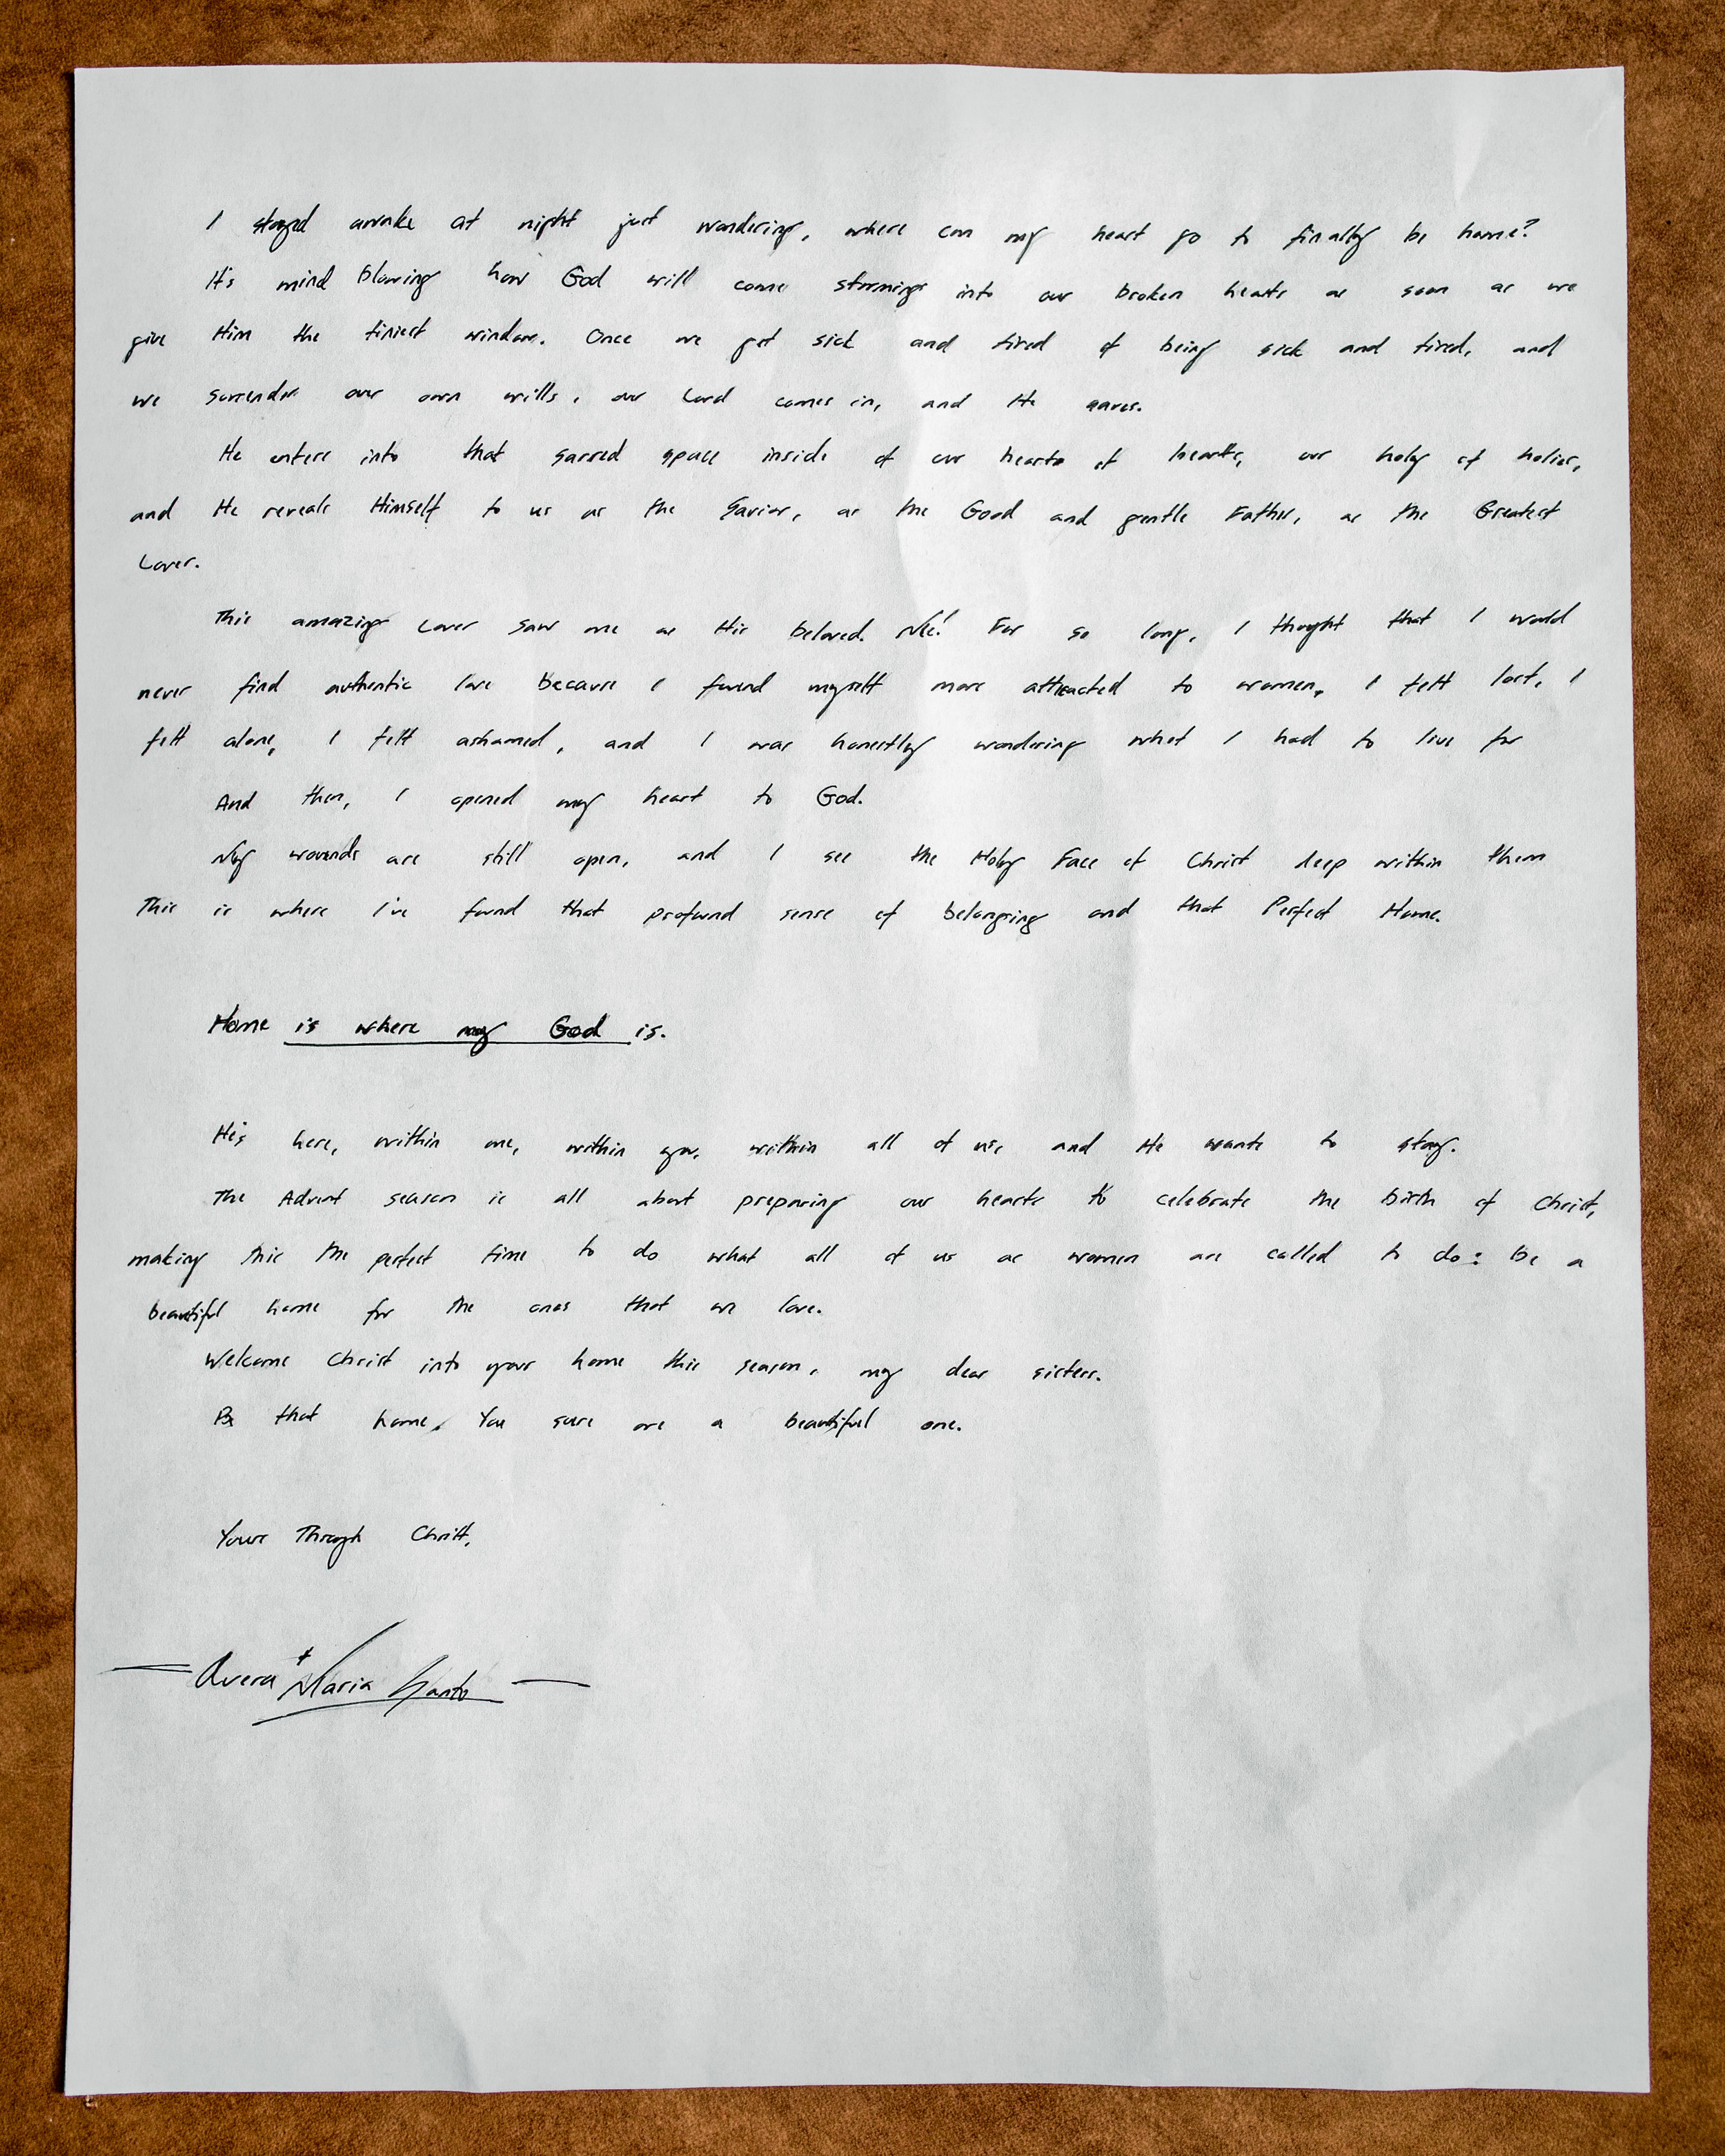 I stayed awake at night just wondering, where can my heart go to finally be home?
It's mind blowing how God will come storming into our broken hearts as soon as we
give Him the tiniest window. Once we get sick and tired of being sick and tired, and
we surrender our own wills, our Lord comes in, and He saves.
He enters into that sacred space inside of our hearts of hearts, our holy of holies,
and He reveals Himself to us as the Savior, as the Good and gentle Father, as the Greatest
Lover.
This amazing Lover saw me as His beloved. Me! For so long, I thought that I would
never find authentic love because I found myself more attracted to women, I felt lost, I
felt alone, I felt ashamed, and I was honestly wondering what I had to live for
And then, I opened my heart to God.
My wounds are still open, and I see the Holy Face of Christ deep within them
This is where I've found that profound sense of belonging and that Perfect Home.
Home is where my God is.
He's here, within me, within you, within all of us, and He wants to stay.
The Advent season is all about preparing our hearts to celebrate the birth of Christ,
making this the perfect time to do what all of us as women are called to do: Be a
beautiful home for the ones that we love.
Welcome Christ into your home this season, my dear sisters.
Be that home. You sure are a beautiful one.
Yours Through Christ,
Avera Maria Santo